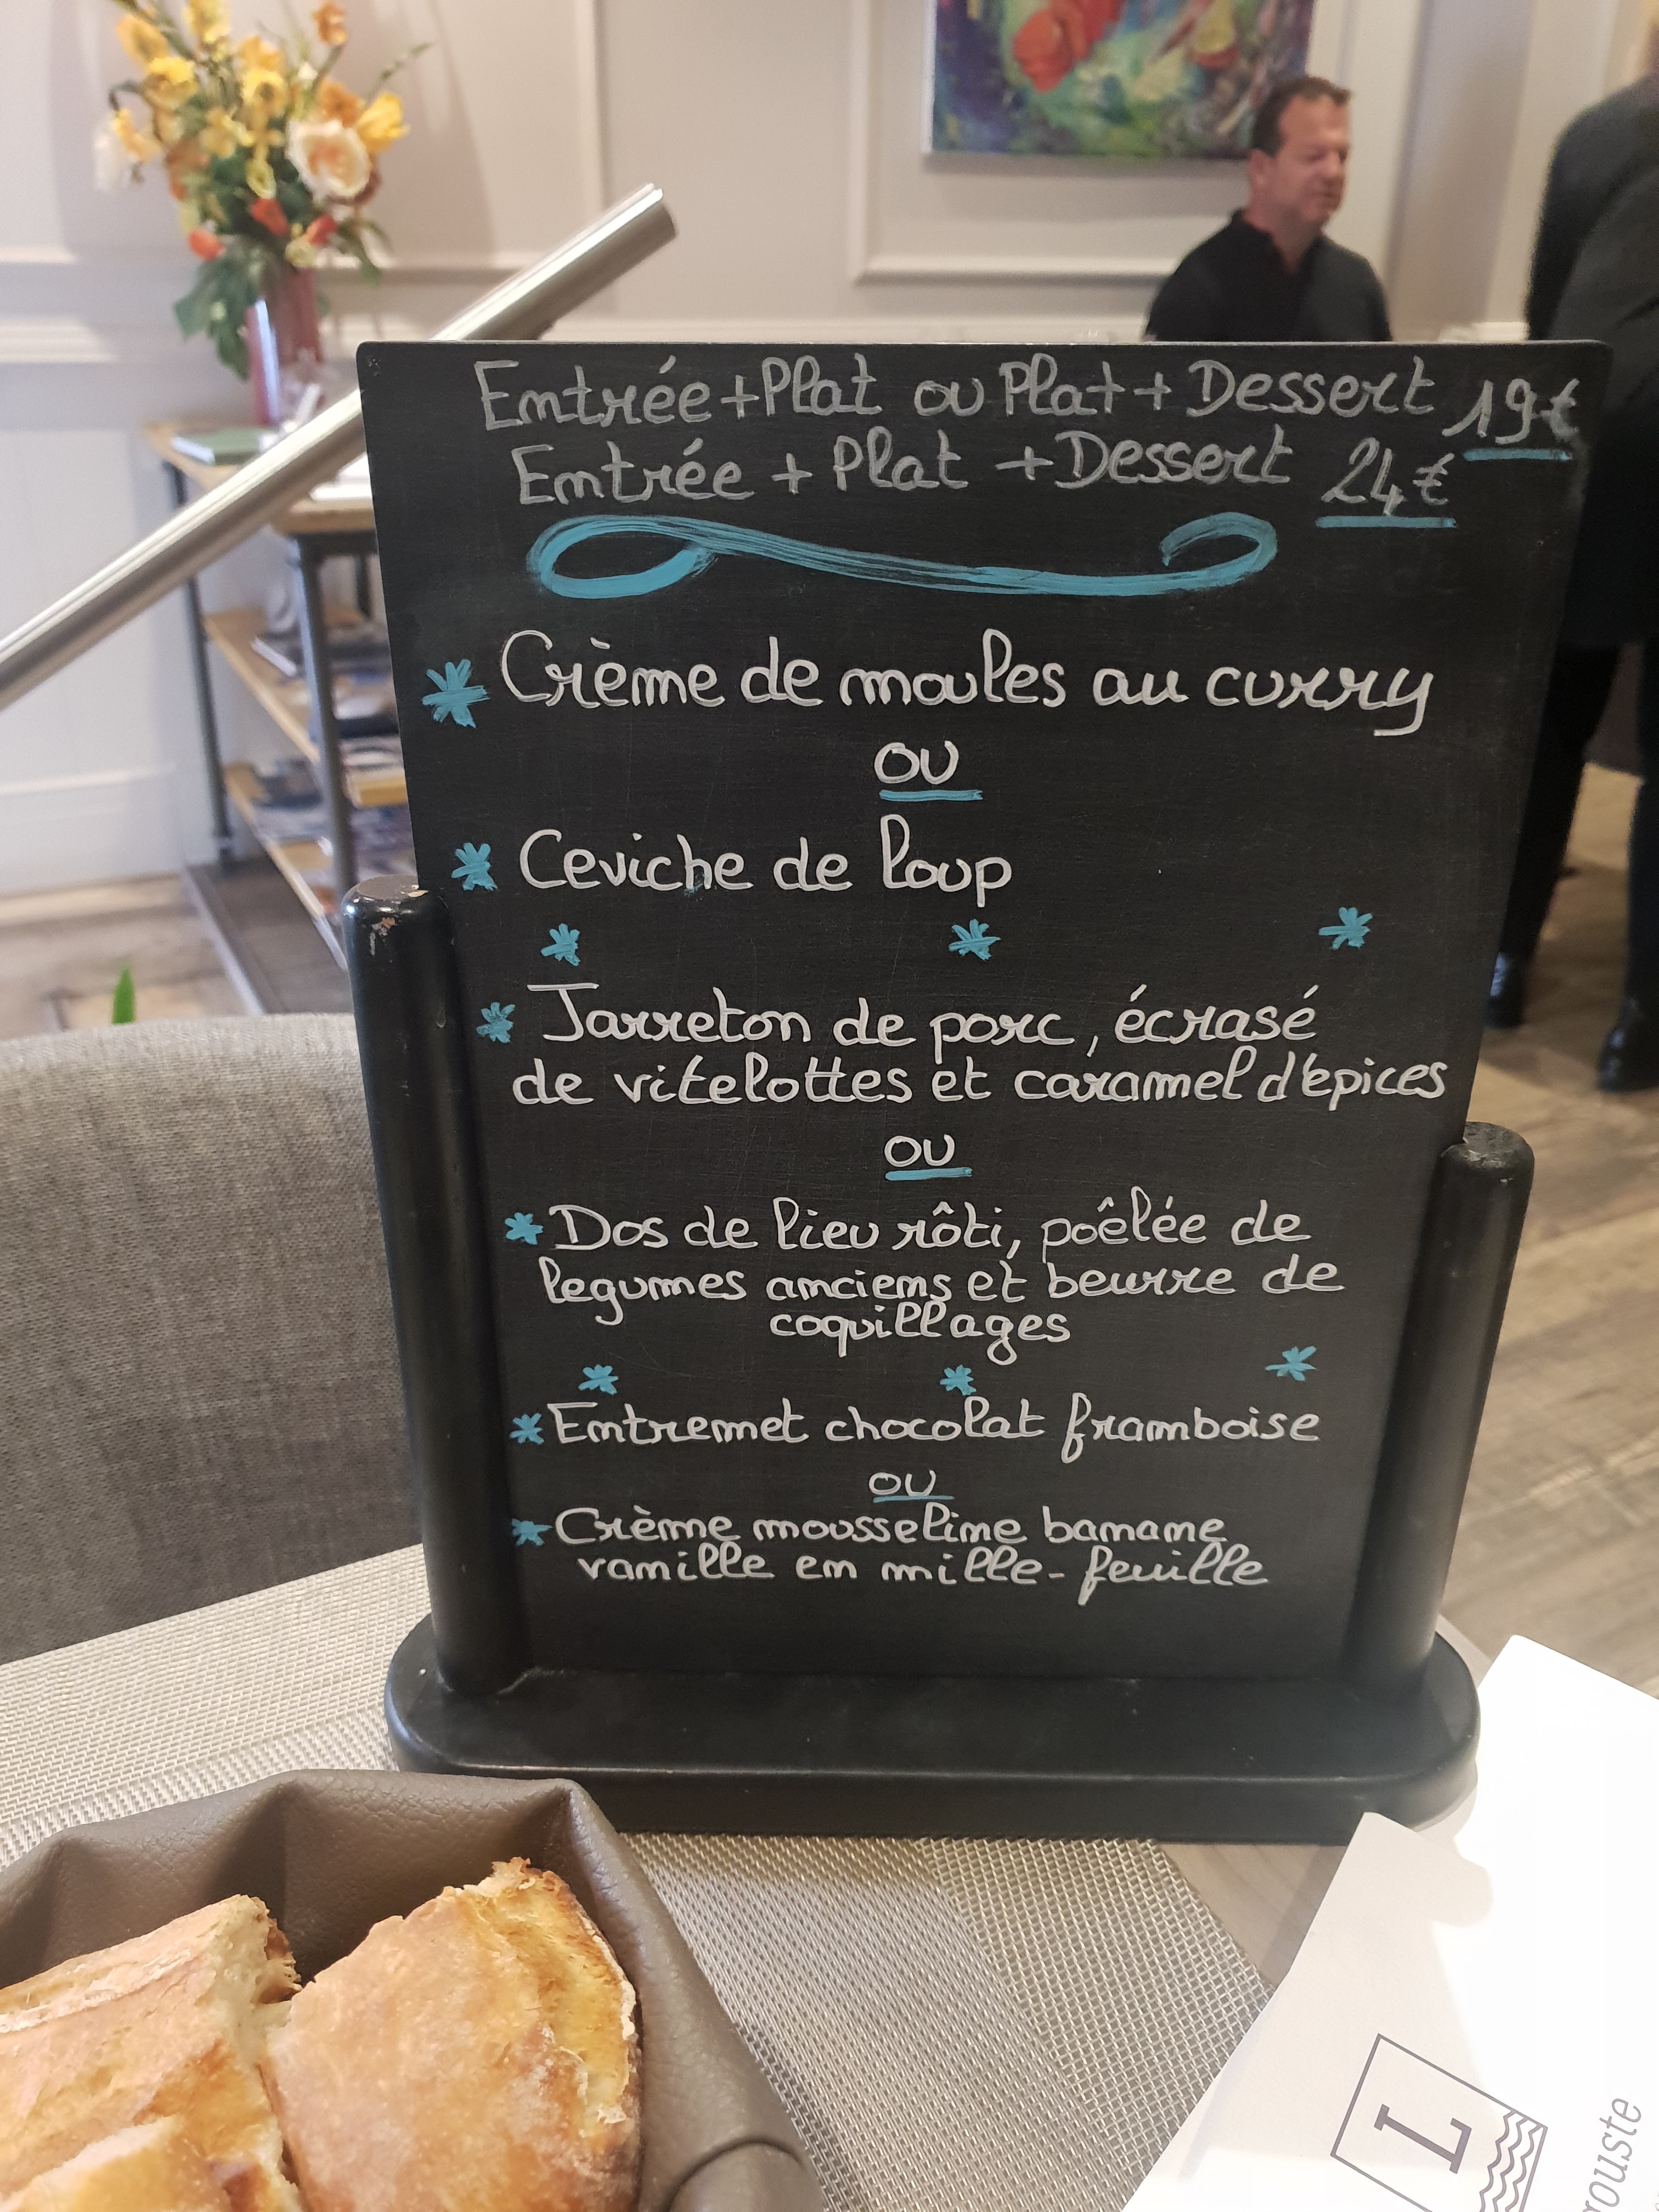 Entrée + Plat ou Plat + Dessert 19€
Entrée + Plat + Dessert 24€
* Crème de moules au curry
ou
* Ceviche de loup
* * *
* Jarreton de porc, écrasé
de vitelottes et caramel d'épices
ou
* Dos de lieu rôti, poêlée de
legumes anciens et beurre de
coquillages
* * *
* Entremet chocolat framboise
ou
* Crème mousseline banane
vanille en mille-feuille
L